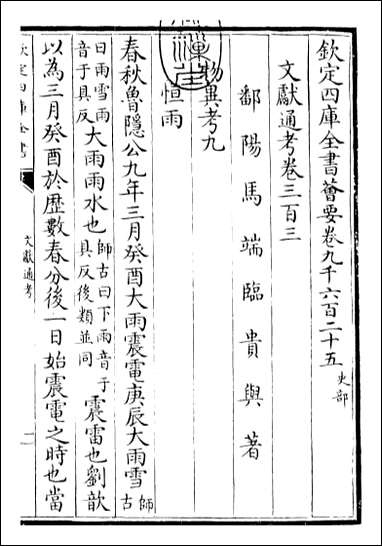 欽定四庫全書薈要卷九千六百二十五 史部
文獻通考卷三百三
鄱陽馬端臨貴與著
物異考九
恒雨
春秋魯隱公九年三月癸酉大雨震電庚辰大雨雪師古
曰雨雪雨音于具反大雨雨水也師古曰下雨音于具反後類並同震雷也劉歆
以為三月癸酉於歷數春分後一日始震電之時也當
欽定四庫全書
文獻通考
一